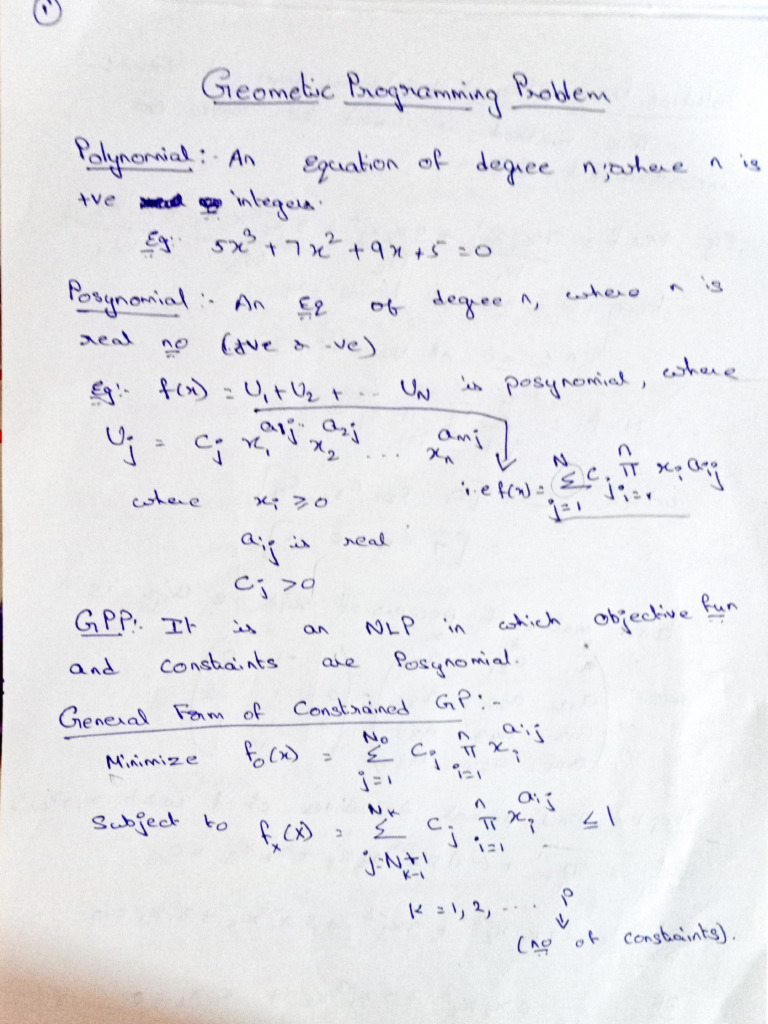 1
Geometric Programming Problem
Polynomial :- An Equation of degree n, where n is
+ve integers.
Eg:- 5x³ + 7x² + 9x + 5 = 0
Posynomial :- An Eq of degree n, where n is
real no (+ve & -ve)
Eg:- f(x) = U₁ + U₂ + ... U_N is posynomial, where
U_j = C_j x₁^a₁j x₂^a₂j ... x_n^a_nj
i.e f(x) = Σ_{j=1}^{N} C_j Π_{i=1}^{n} x_i^{a_ij}
where x_i ≥ 0
a_ij is real
C_j > 0
GPP:- It is an NLP in which objective fun
and constraints are Posynomial.
General Form of Constrained GP :-
Minimize f₀(x) = Σ_{j=1}^{N₀} C_j Π_{i=1}^{n} x_i^{a_ij}
Subject to f_x(x) = Σ_{j=N_{k-1}+1}^{N_k} C_j Π_{i=1}^{n} x_i^{a_ij} ≤ 1
K = 1, 2, ... P
↓
(no of constraints).